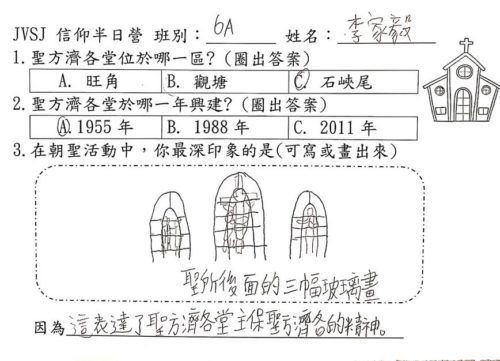 JVSJ 信仰半日營 班別：6A 姓名：李家毅
1.聖方濟各堂位於哪一區？(圈出答案)
A. 旺角 B. 觀塘 C. 石峽尾
2.聖方濟各堂於哪一年興建？(圈出答案)
A. 1955 年 B. 1988 年 C. 2011 年
3.在朝聖活動中，你最深印象的是(可寫或畫出來)
聖所後面的三幅玻璃畫
因為這表達了聖方濟各堂主保聖方濟各的精神。